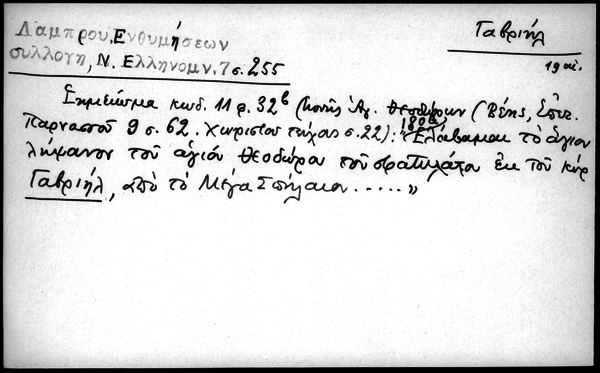 Λάμπρου, Ενθυμήσεων
συλλογη, Ν. Ελληνομν. 7 σ. 255
Γαβριήλ
19 αἰ.
Σημείωμα κωδ. 11 φ. 32β (Μονῆς Ἁγ. Θεοδώρων (Βέης, Ἐπετ.
Παρνασσοῦ 9 σ. 62. Χωρισταί τύχαι σ. 22): "1808 Ἐλάβαμαι τὸ ἅγιον
λήψανον τοῦ ἁγίου Θεοδώρου τοῦ στρατιλάτου ἐκ τοῦ κὺρ
Γαβριήλ, ἀπὸ τὸ Μέγα Σπήλαιον ....."